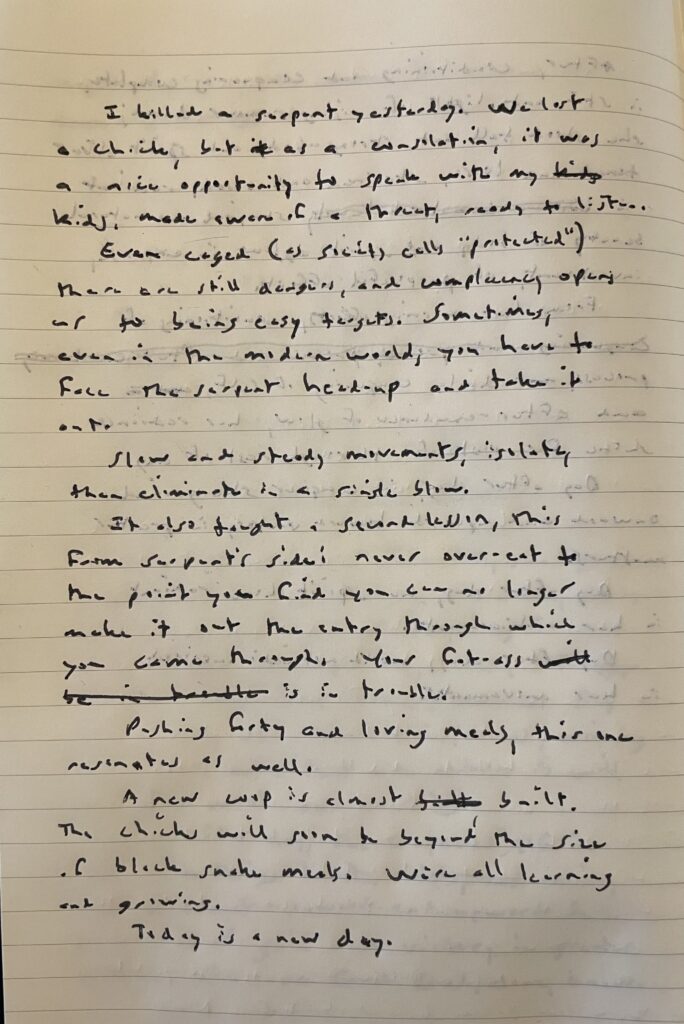 I killed a serpent yesterday. We lost
a chick, but it as a consolation, it was
a nice opportunity to speak with my kids
kids, made aware of a threat, ready to listen.
Even caged (as society calls "protected")
there are still dangers, and complacency opens
us to being easy targets. Sometimes,
even in the modern world, you have to
face the serpent head-up and take it
out.
Slow and steady movements, isolate,
then eliminate in a single blow.
It also taught a second lesson, this
from serpent's side: never over-eat to
the point you find you can no longer
make it out the entry through which
you came through. Your fat-ass will
be in trouble is in trouble.
Pushing forty and loving meals, this one
resonates as well.
A new coop is almost built built.
The chicks will soon be beyond the size
of black snake meals. We're all learning
and growing.
Today is a new day.